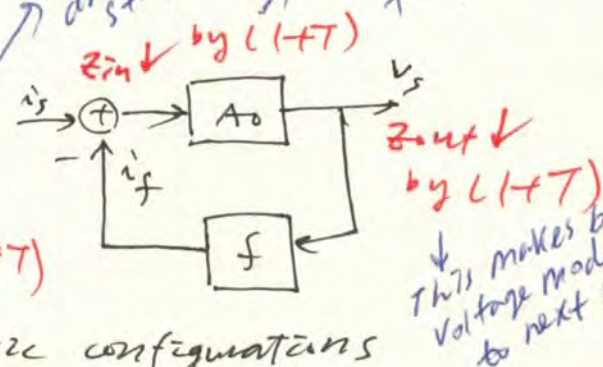 Zin ↓ by (1+T)
is
+
A₀
vs
−
if
Zout ↓
by (1+T)
f
+T)
↓
This makes
voltage
to next
configurations